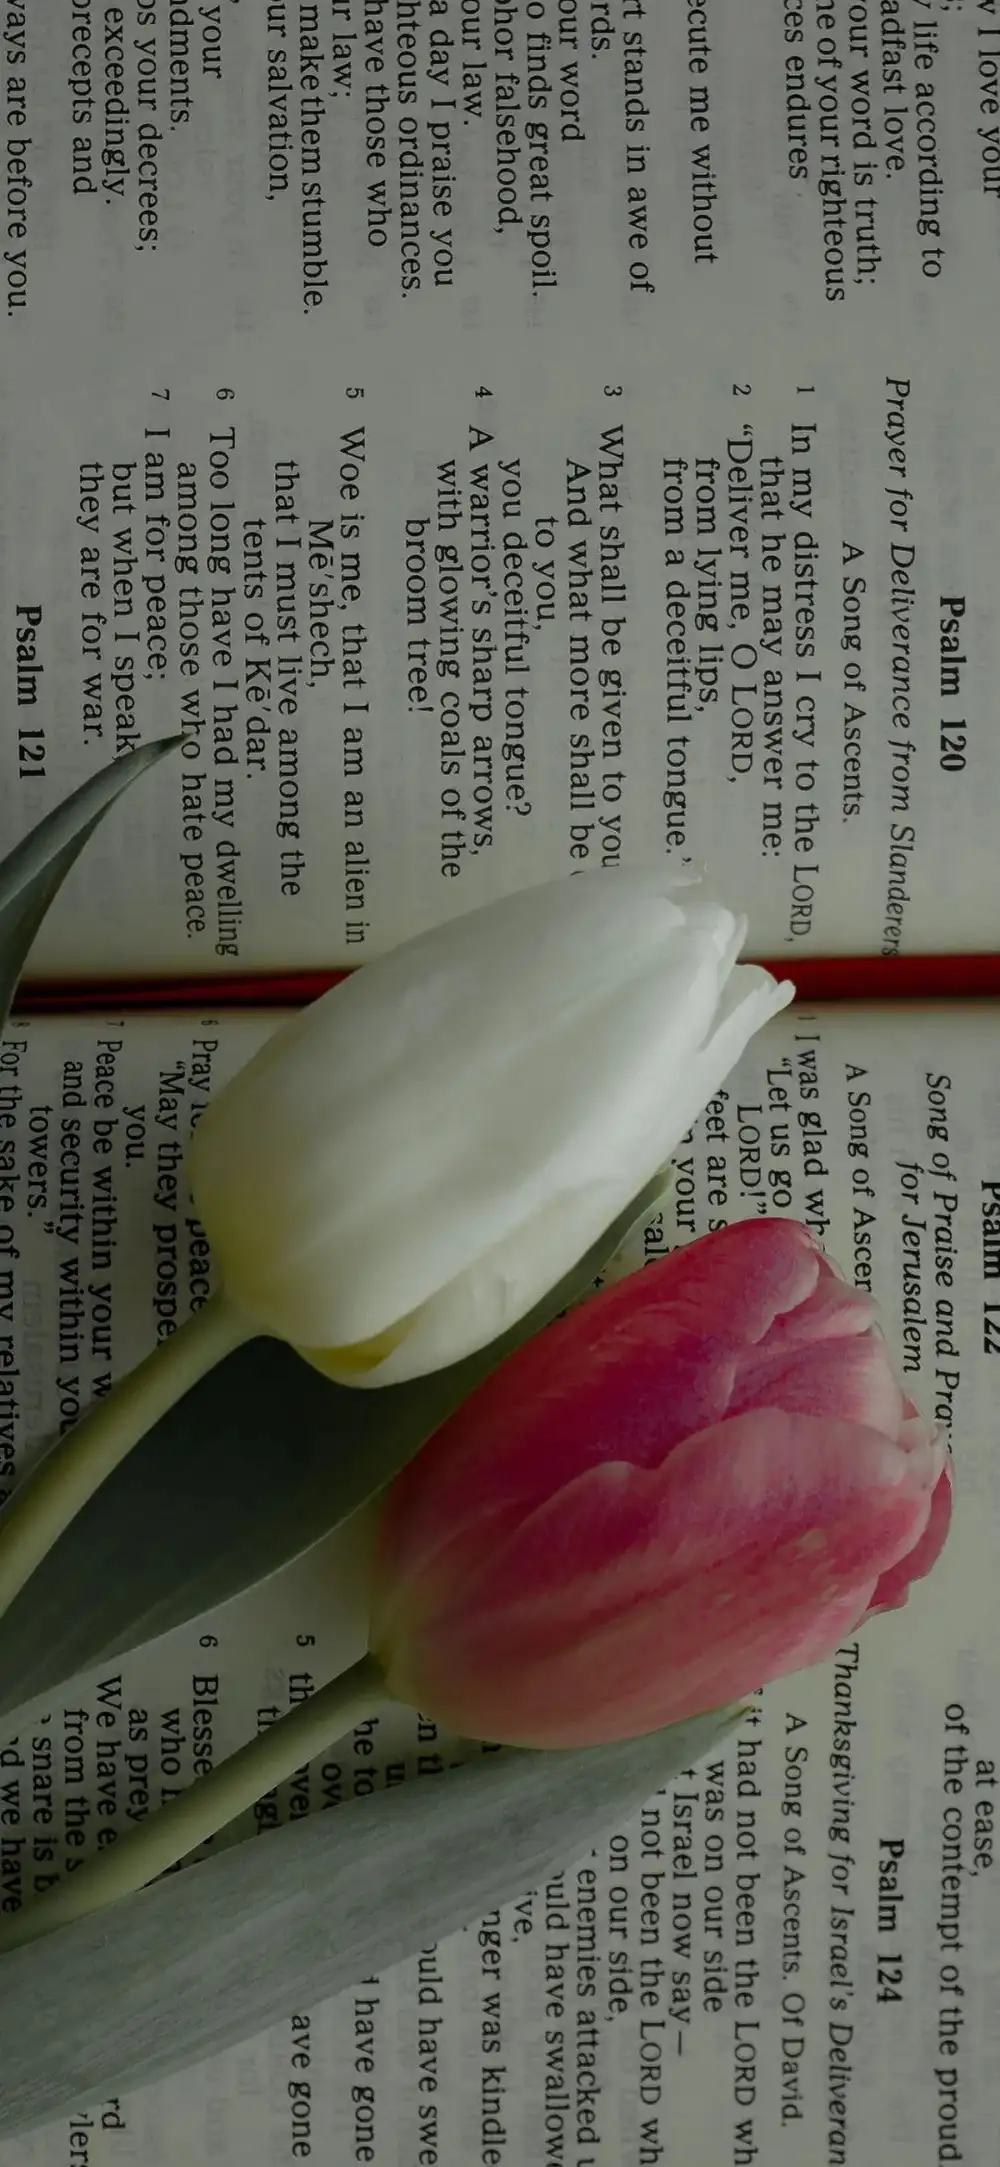 w I love your
life according to
adfast love.
our word is truth;
ne of your righteous
ces endures
ecute me without
rt stands in awe of
rds.
our word
o finds great spoil.
phor falsehood,
our law.
a day I praise you
hteous ordinances.
have those who
r law;
make them stumble.
ur salvation,
your
ndments.
os your decrees;
exceedingly.
precepts and
ways are before you.
Psalm 120
Prayer for Deliverance from Slanderers
A Song of Ascents.
1 In my distress I cry to the LORD,
that he may answer me:
2 “Deliver me, O LORD,
from lying lips,
from a deceitful tongue.”
3 What shall be given to you
And what more shall be
to you,
you deceitful tongue?
4 A warrior’s sharp arrows,
with glowing coals of the
broom tree!
5 Woe is me, that I am an alien in
Mē′shech,
that I must live among the
tents of Kē′dar.
6 Too long have I had my dwelling
among those who hate peace.
7 I am for peace;
but when I speak,
they are for war.
Psalm 121
Psalm 122
Song of Praise and Pra
for Jerusalem
A Song of Ascen
1 I was glad wh
“Let us go
LORD!”
feet are s
your
6 Pray peace
“May they prospe
you.
7 Peace be within your w
and security within you
towers.”
8 For the sake of my relatives
at ease,
of the contempt of the proud.
Psalm 124
Thanksgiving for Israel’s Deliveran
A Song of Ascents. Of David.
it had not been the LORD wh
was on our side
t Israel now say—
not been the LORD wh
on our side,
enemies attacked u
uld have swallow
ive,
nger was kindle
ould have swe
have gone
5 th
ave gone
6 Blesse
who
as prey
We have e
from the s
snare is b
d we have